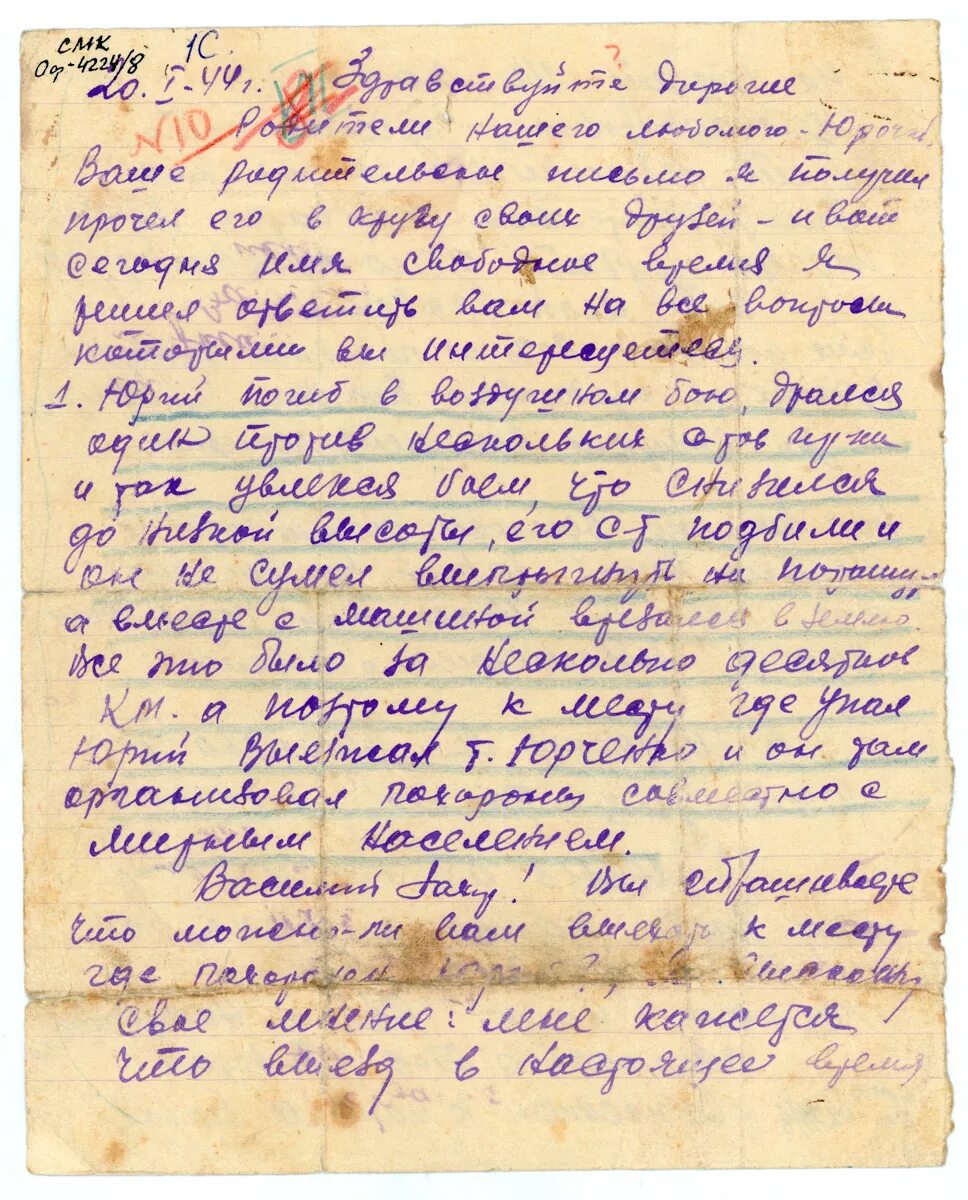 СМК
1С.
Оф-4224/8
?
20. I-44 г. VII Здравствуйте дорогие
N10
Родители нашего любимого - Юрочки.
Ваше родительское письмо я получил
прочел его в кругу своих друзей - и вот
сегодня имя свободное время я
решил ответить вам на все вопросы
которыми вы интересуетесь.
1. Юрий погиб в воздушном бою, дрался
один против нескольких
и так увлекся боем, что снизился
до низкой высоты, его подбили и
он не сумел выпрыгнуть на
а вместе с машиной врезался в землю.
Все это было за несколько десятков
км. а поэтому к месту где упал
Юрий выезжал т. Юрченко и он там
организовал похороны совместно с
мирным населением.
Василий Заху! Вы спрашиваете
что можно-ли вам выехать к месту
где похоронен
свое мнение: мне кажется
что выезд в настоящее время